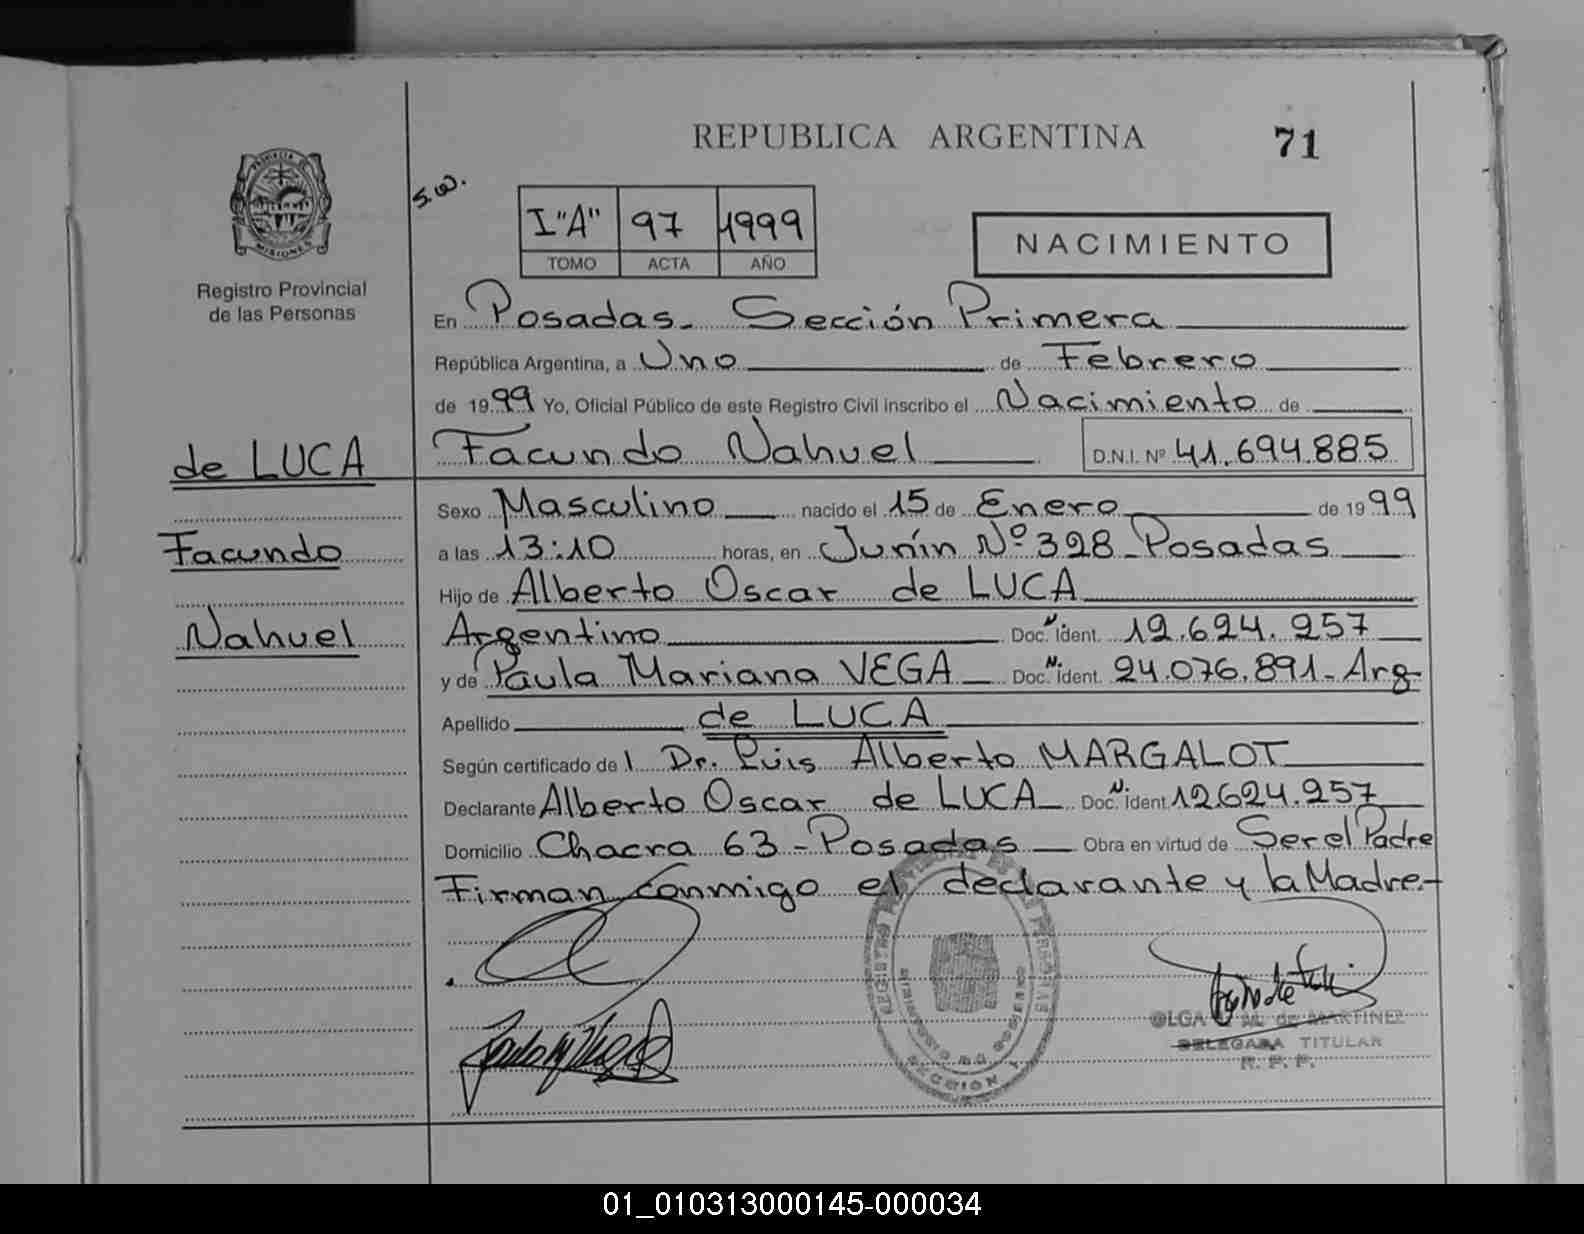 REPUBLICA ARGENTINA
71
PROVINCIA DE
MISIONES
Registro Provincial
de las Personas
S.W.
I "A" 97 1999
TOMO ACTA AÑO
NACIMIENTO
En Posadas - Sección Primera
República Argentina, a Uno de Febrero
de 1999 Yo, Oficial Público de este Registro Civil inscribo el Nacimiento de
de LUCA
Facundo Nahuel D.N.I. Nº 41.694.885
Facundo
Nahuel
Sexo Masculino nacido el 15 de Enero de 1999
a las 13:10 horas, en Junín Nº 328 - Posadas
Hijo de Alberto Oscar de LUCA
Argentino Doc. N. Ident. 12.624.257
y de Paula Mariana VEGA Doc. N. Ident. 24.076.891 - Arg
Apellido de LUCA
Según certificado del Dr. Luis Alberto MARGALOT
Declarante Alberto Oscar de LUCA Doc. N. Ident. 12624.257
Domicilio Chacra 63 - Posadas Obra en virtud de Ser el Padre
Firman conmigo el declarante y la Madre.-
OLGA M. de MARTINEZ
DELEGADA TITULAR
R. P. P.
01_010313000145-000034